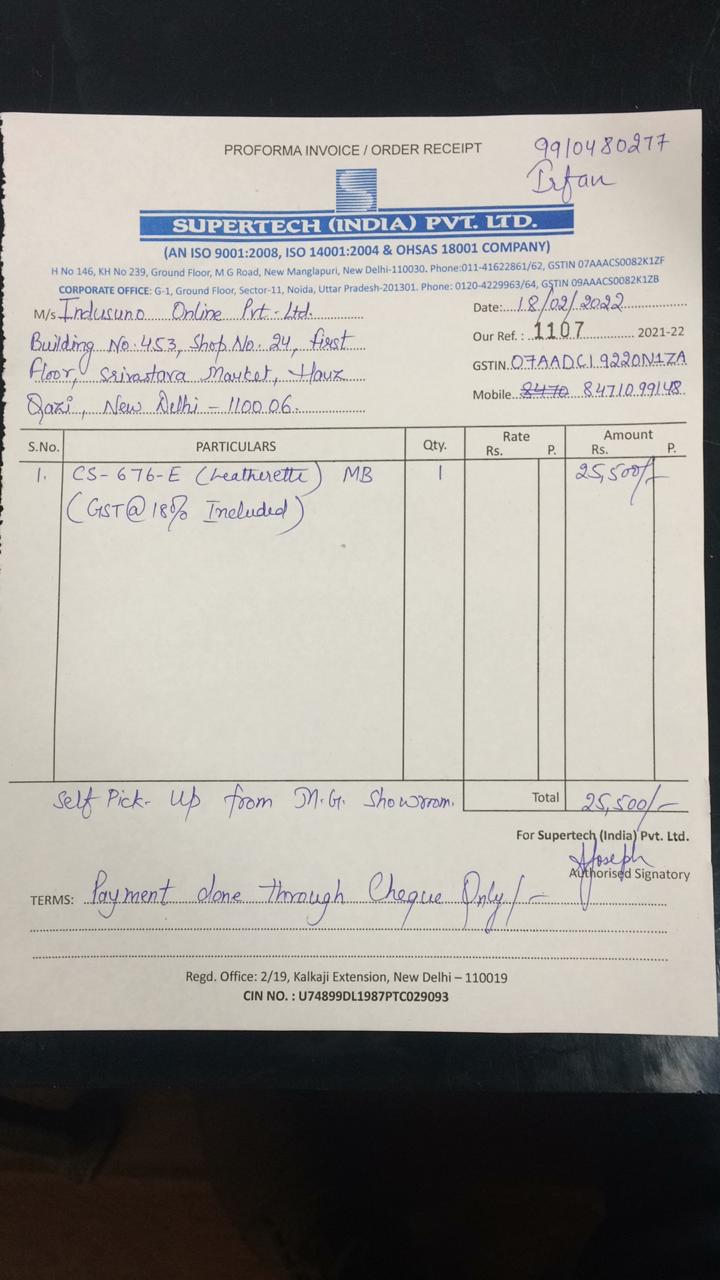 PROFORMA INVOICE / ORDER RECEIPT
9910480277
Irfan
SUPERTECH (INDIA) PVT. LTD.
(AN ISO 9001:2008, ISO 14001:2004 & OHSAS 18001 COMPANY)
H No 146, KH No 239, Ground Floor, M G Road, New Manglapuri, New Delhi-110030. Phone:011-41622861/62, GSTIN 07AAACS0082K1ZF
CORPORATE OFFICE: G-1, Ground Floor, Sector-11, Noida, Uttar Pradesh-201301. Phone: 0120-4229963/64, GSTIN 09AAACS0082K1ZB
M/s Indusuno Online Pvt. Ltd.
Building No. 453, Shop No. 24, first
Floor, Srivastava Market, Hauz
Qazi, New Delhi - 110006.
Date: 18/02/2022
Our Ref. : 1107 2021-22
GSTIN. 07AADCI9220N1ZA
Mobile 8470 8471099148
S.No. PARTICULARS Qty. Rate Rs. P. Amount Rs. P.
1. CS-676-E (Leatherette) MB 1 25,500/-
(GST@18% Included)
Self Pick-Up from M.G. Showrrom. Total 25,500/-
For Supertech (India) Pvt. Ltd.
AJoseph
Authorised Signatory
TERMS: Payment done through Cheque Only/-
Regd. Office: 2/19, Kalkaji Extension, New Delhi – 110019
CIN NO. : U74899DL1987PTC029093